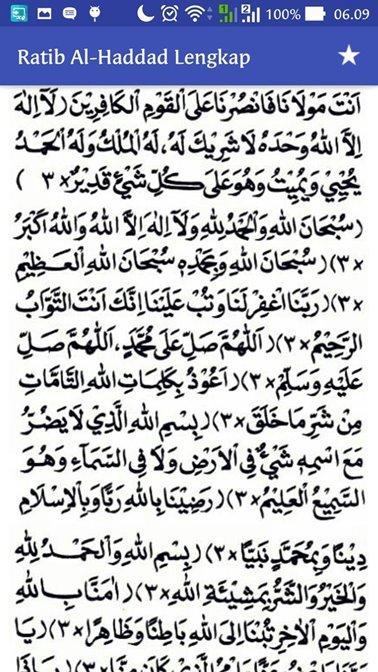 100% 06.09
Ratib Al-Haddad Lengkap
اَنْتَ مَوْلَانَا فَانْصُرْنَا عَلَى الْقَوْمِ الْكَافِرِيْنَ (لَآ اِلٰهَ
اِلَّا اللهُ وَحْدَهُ لَا شَرِيْكَ لَهُ، لَهُ الْمُلْكُ وَلَهُ الْحَمْدُ
يُحْيِيْ وَيُمِيْتُ وَهُوَ عَلَى كُلِّ شَيْئٍ قَدِيْرٌ ×٣ )
(سُبْحَانَ اللهِ وَالْحَمْدُ لِلّٰهِ وَلَآ اِلٰهَ اِلَّا اللهُ وَاللهُ اَكْبَرُ
×٣) (سُبْحَانَ اللهِ وَبِحَمْدِهِ سُبْحَانَ اللهِ الْعَظِيْمِ
×٣) (رَبَّنَا اغْفِرْ لَنَا وَتُبْ عَلَيْنَا اِنَّكَ اَنْتَ التَّوَّابُ
الرَّحِيْمُ ×٣) (اَللّٰهُمَّ صَلِّ عَلَى مُحَمَّدٍ، اَللّٰهُمَّ صَلِّ
عَلَيْهِ وَسَلِّمْ ×٣) (اَعُوْذُ بِكَلِمَاتِ اللهِ التَّامَّاتِ
مِنْ شَرِّ مَا خَلَقَ ×٣) (بِسْمِ اللهِ الَّذِيْ لَا يَضُرُّ
مَعَ اسْمِهِ شَيْئٌ فِى الْاَرْضِ وَلَا فِى السَّمَآءِ وَهُوَ
السَّمِيْعُ الْعَلِيْمُ ×٣) (رَضِيْنَا بِاللهِ رَبًّا وَبِالْاِسْلَامِ
دِيْنًا وَبِمُحَمَّدٍ نَبِيًّا ×٣) (بِسْمِ اللهِ وَالْحَمْدُ لِلّٰهِ
وَالْخَيْرُ وَالشَّرُّ بِمَشِيْئَةِ اللهِ ×٣) (اٰمَنَّا بِاللهِ
وَالْيَوْمِ الْاٰخِرِ تُبْنَا اِلَى اللهِ بَاطِنًا وَظَاهِرًا ×٣) (يَا